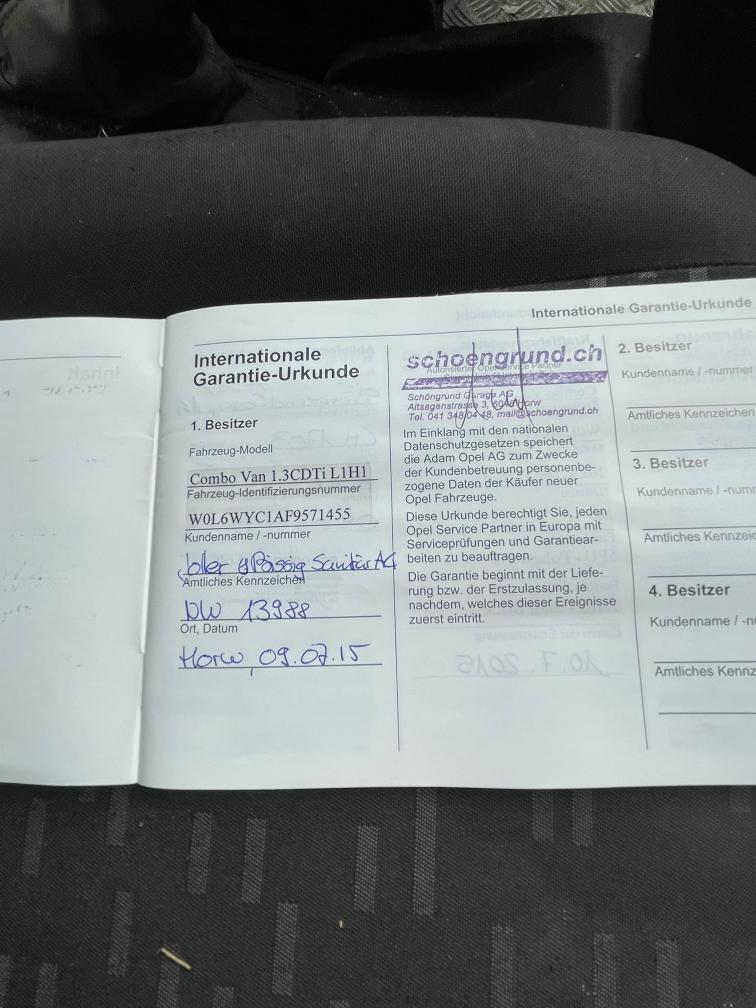 Internationale Garantie-Urkunde
Internationale
Garantie-Urkunde
1. Besitzer
Fahrzeug-Modell
Combo Van 1.3CDTi L1H1
Fahrzeug-Identifizierungsnummer
W0L6WYC1AF9571455
Kundenname / -nummer
Sanitär AG
Amtliches Kennzeichen
13988
Ort, Datum
Horw, 09.07.15
schoengrund.ch
Autorisierter Opel Service Partner
Schöngrund Garage AG
Altsagenstrasse 3, Horw
Tel. 041 348 04 48, mail@schoengrund.ch
Im Einklang mit den nationalen
Datenschutzgesetzen speichert
die Adam Opel AG zum Zwecke
der Kundenbetreuung personenbe-
zogene Daten der Käufer neuer
Opel Fahrzeuge.
Diese Urkunde berechtigt Sie, jeden
Opel Service Partner in Europa mit
Serviceprüfungen und Garantiear-
beiten zu beauftragen.
Die Garantie beginnt mit der Liefe-
rung bzw. der Erstzulassung, je
nachdem, welches dieser Ereignisse
zuerst eintritt.
2. Besitzer
Kundenname / -nummer
Amtliches Kennzeichen
3. Besitzer
Kundenname / -numm
Amtliches Kennzeic
4. Besitzer
Kundenname / -nu
Amtliches Kennz
Inhalt
10.7.2015